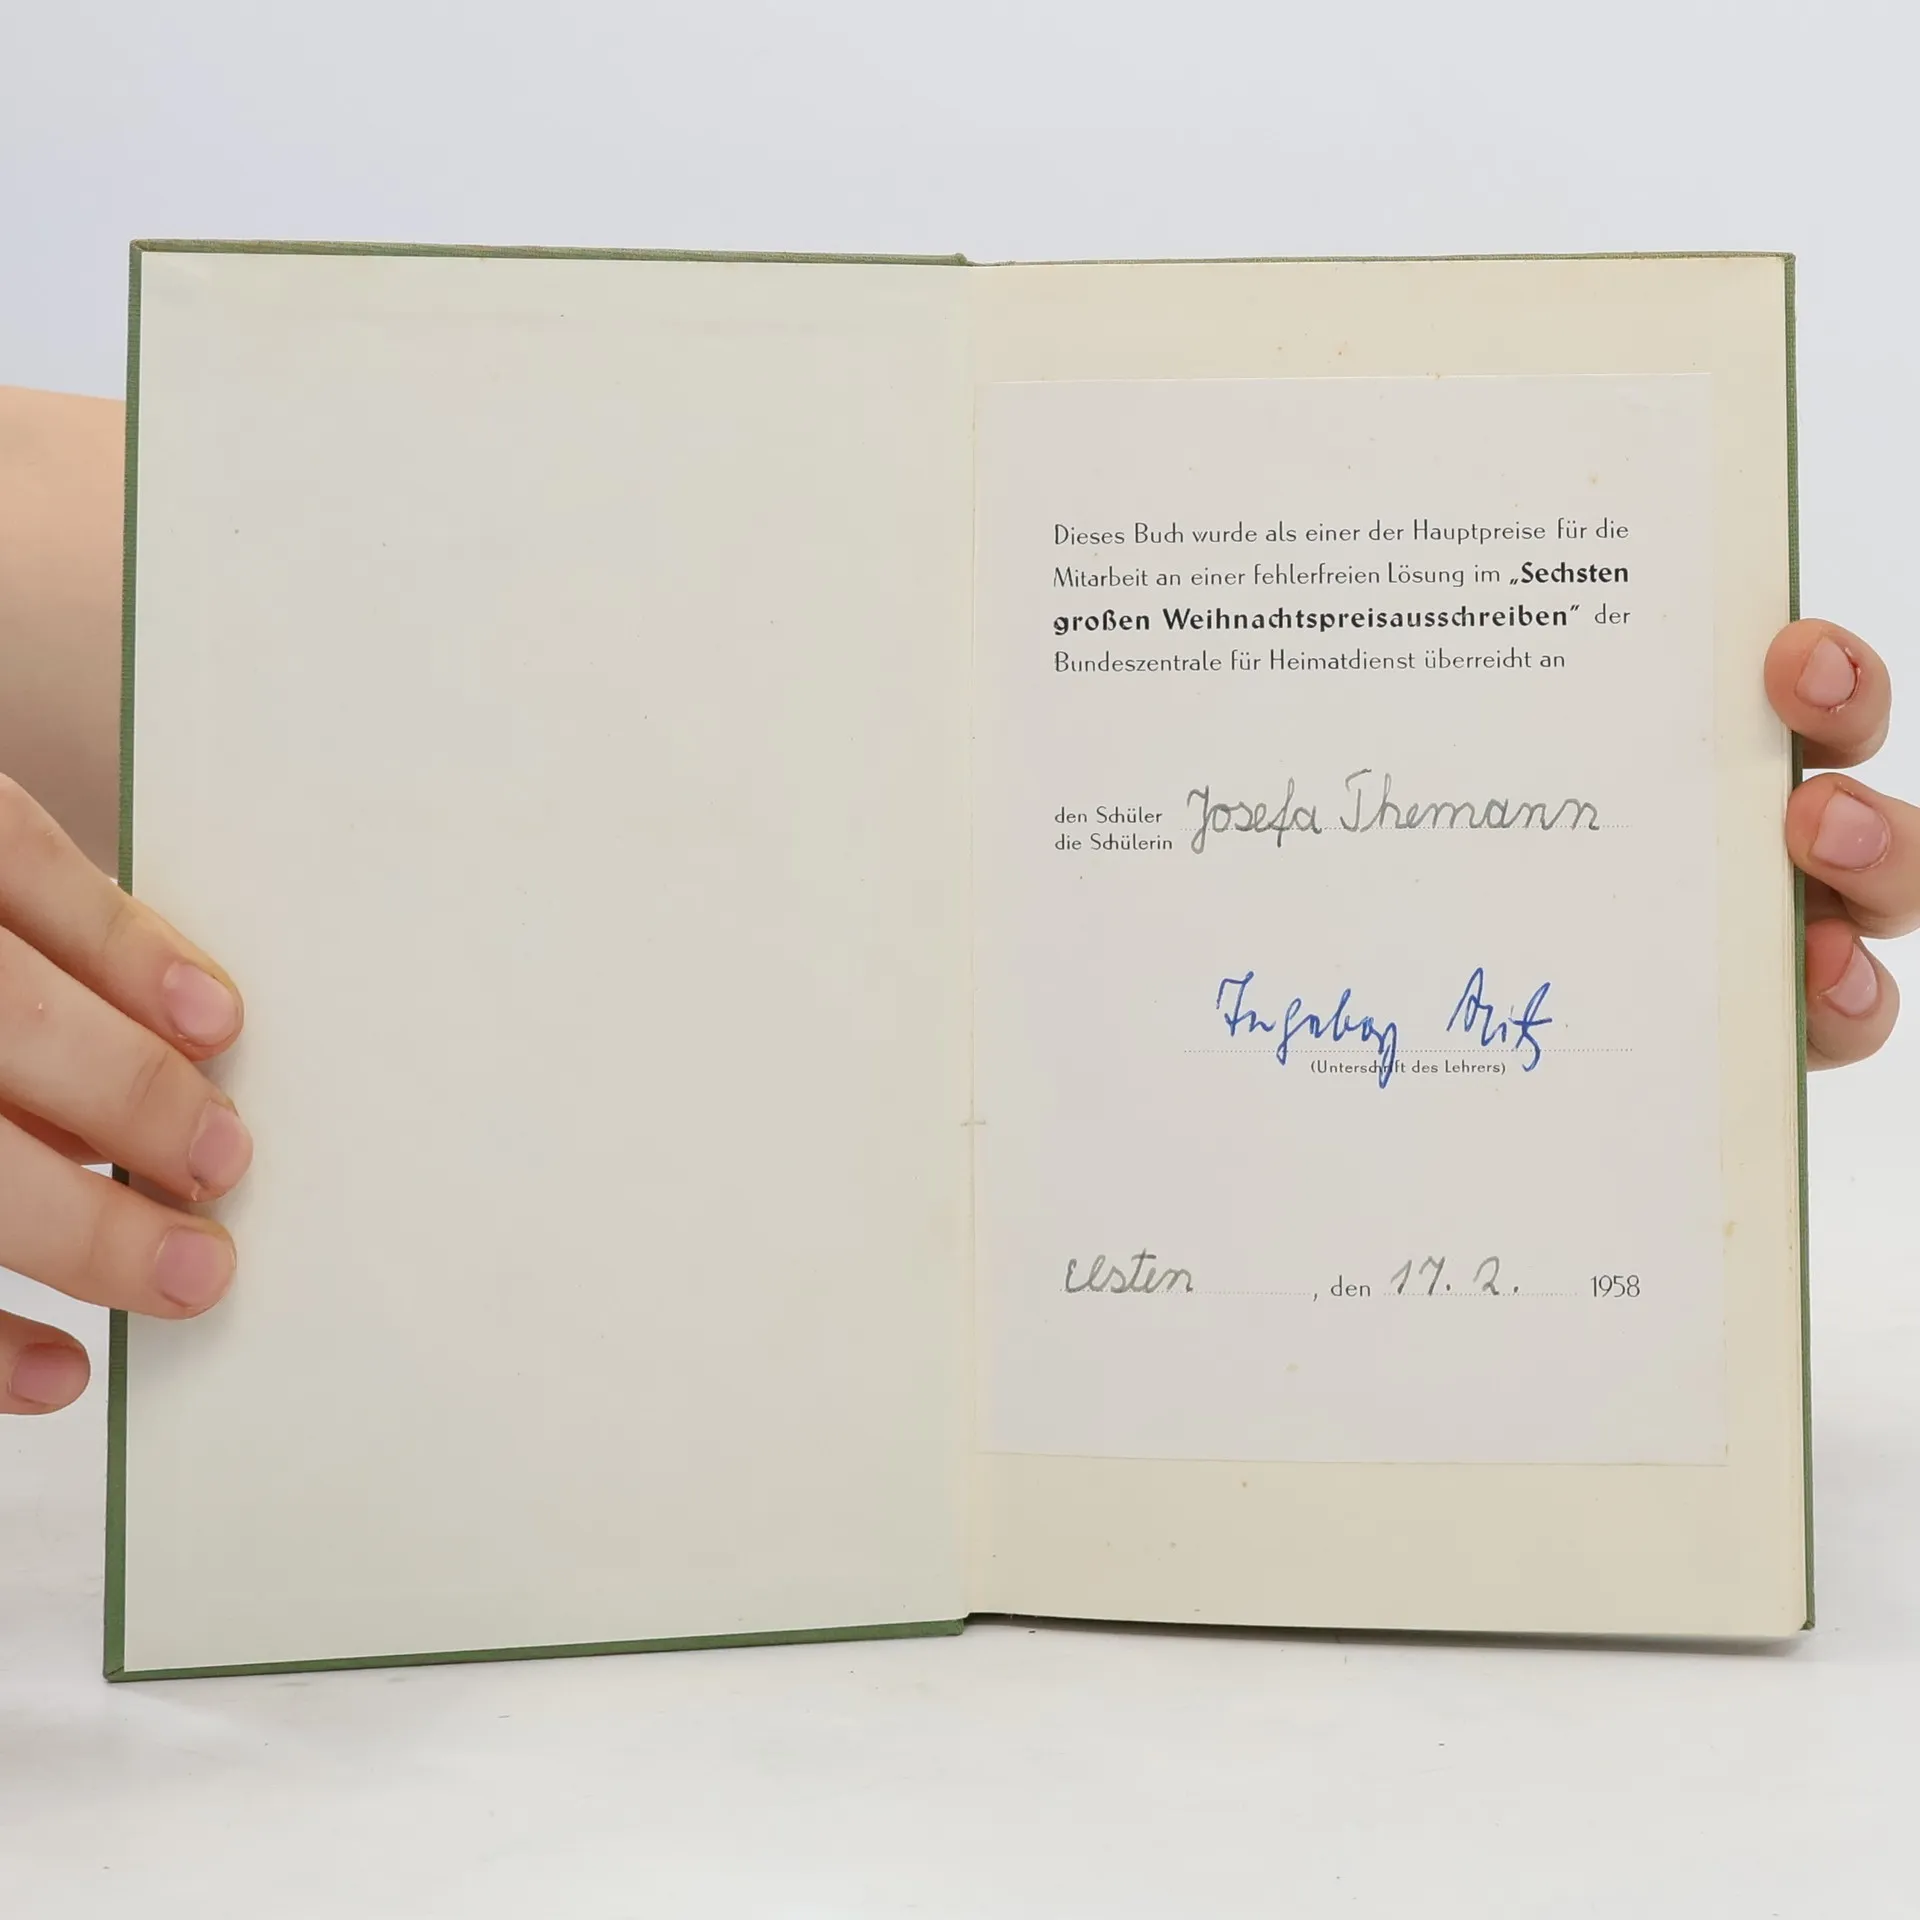 Dieses Buch wurde als einer der Hauptpreise für die
Mitarbeit an einer fehlerfreien Lösung im „Sechsten
großen Weihnachtspreisausschreiben" der
Bundeszentrale für Heimatdienst überreicht an
den Schüler Josefa Themann
die Schülerin
Ingeborg
(Unterschrift des Lehrers)
Elsten, den 17. 2. 1958